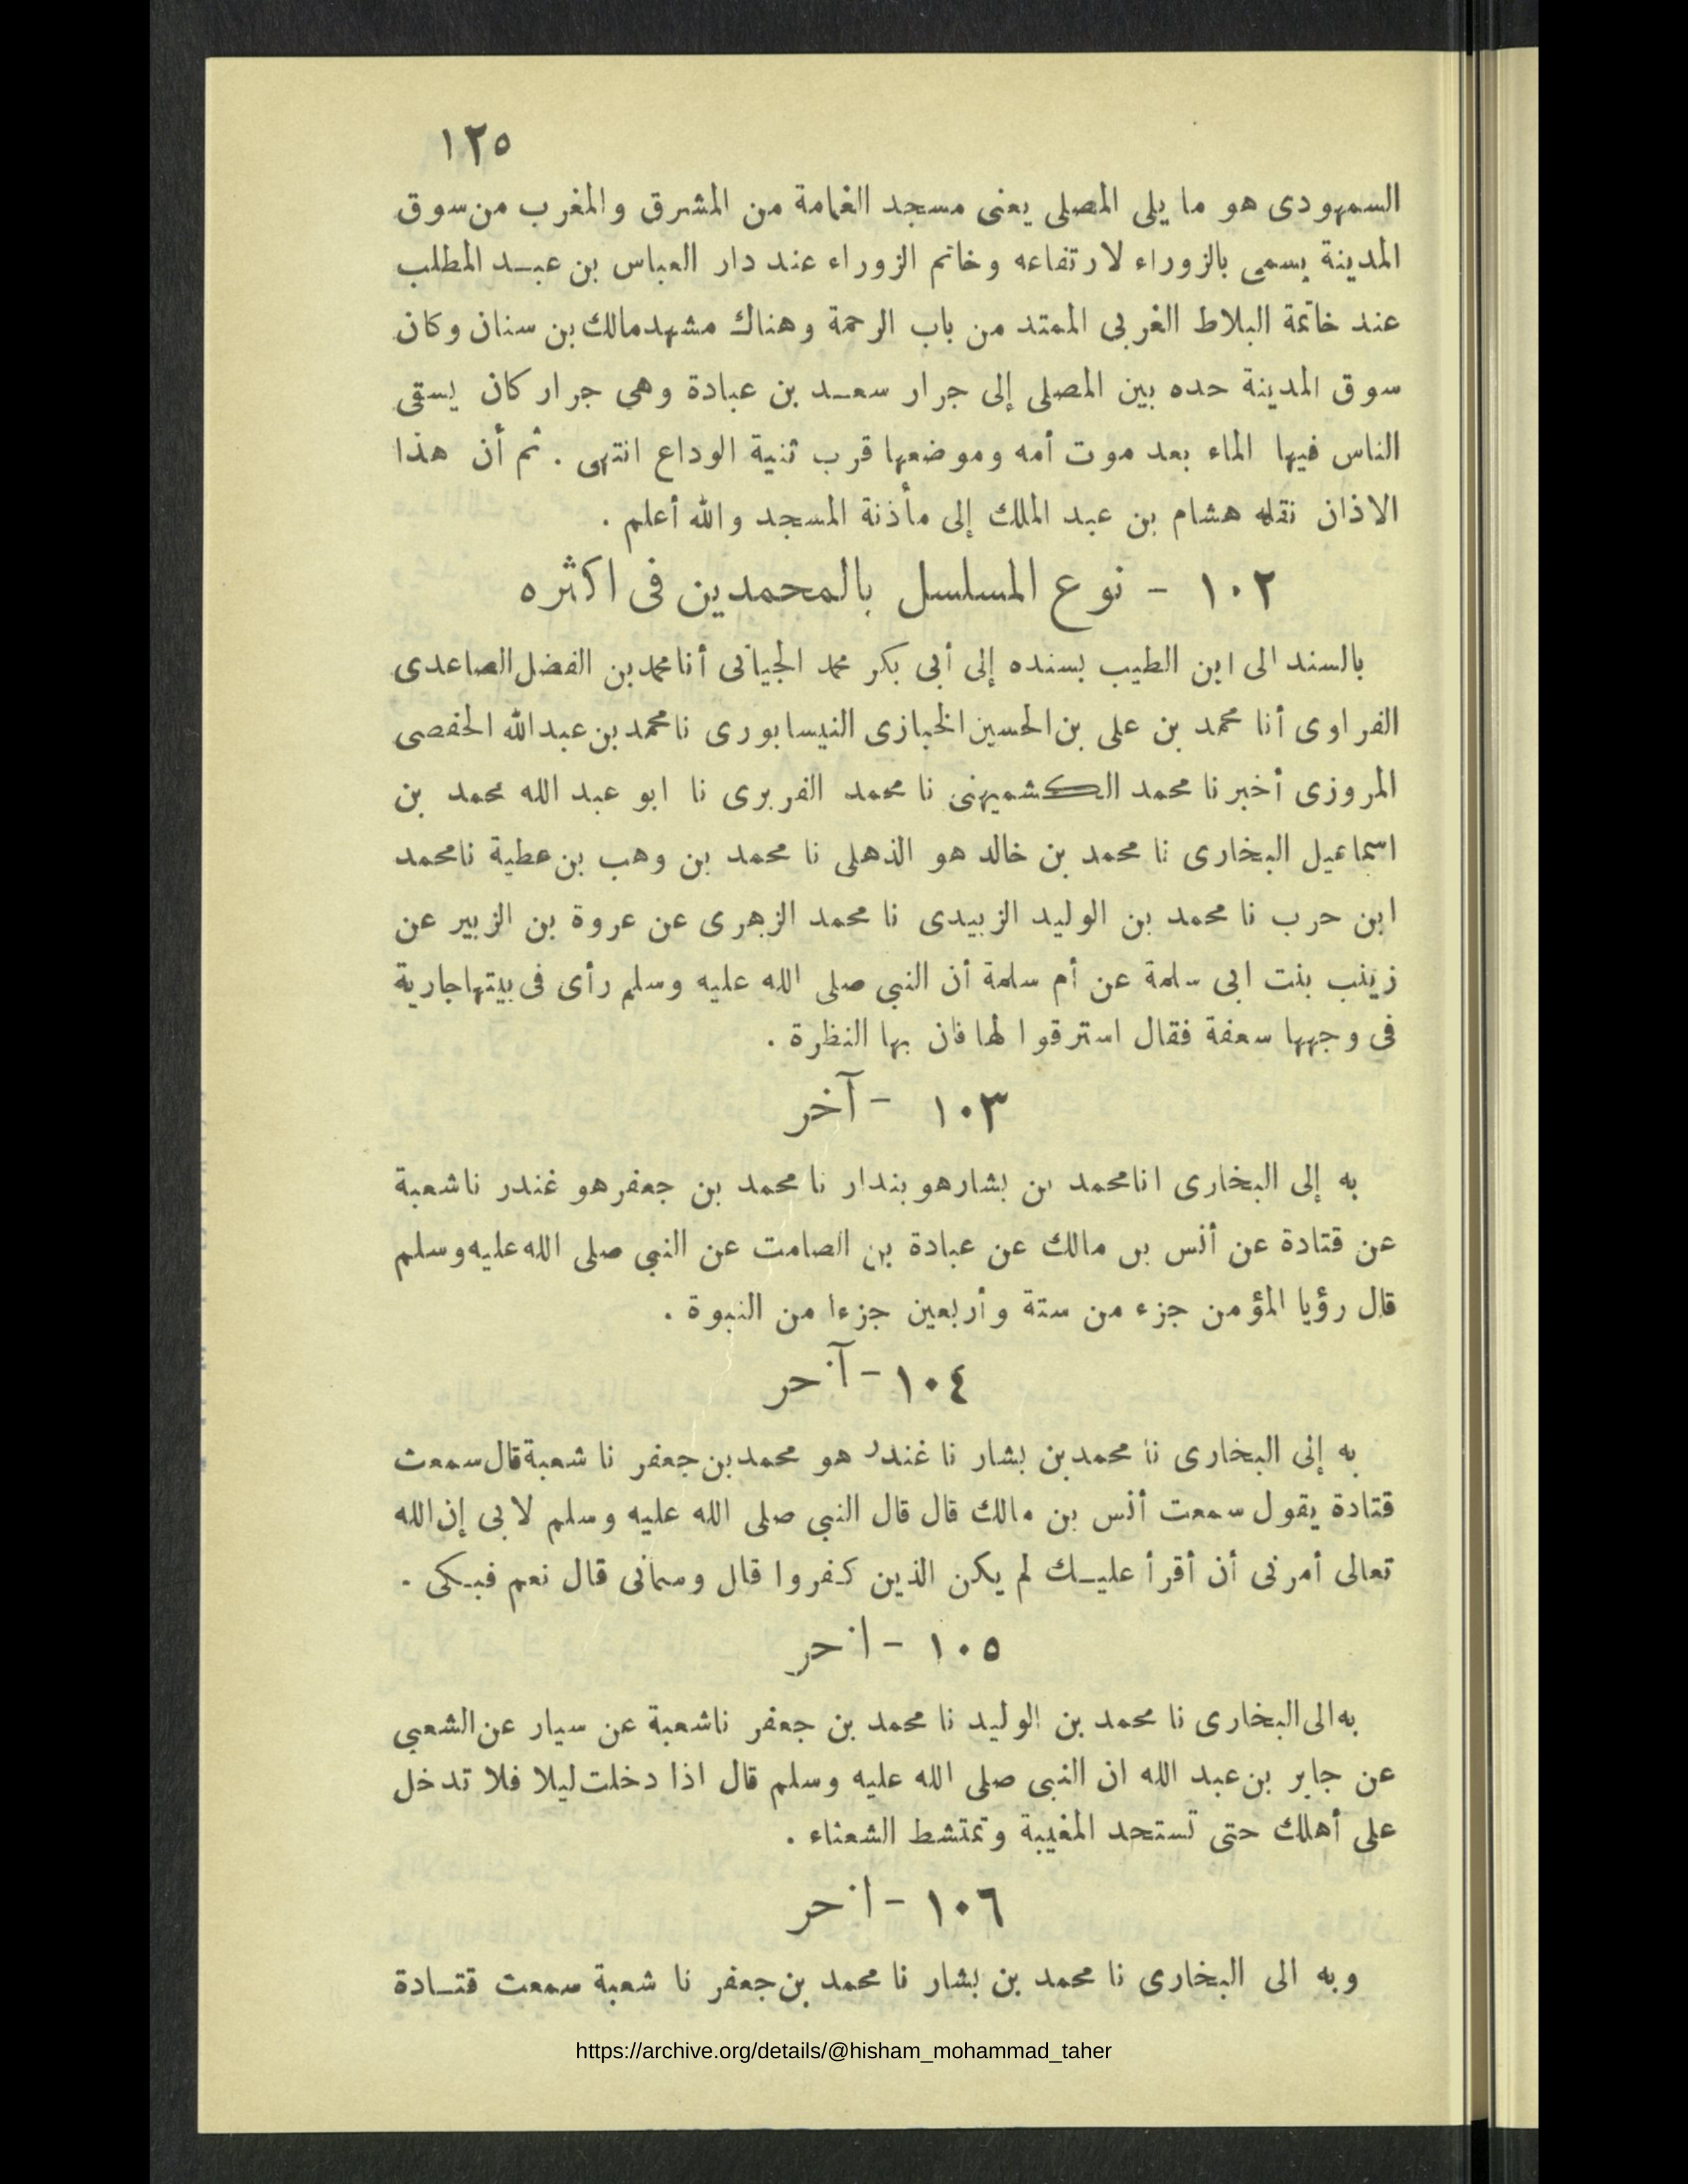 ١٢٥
السمهودى هو ما يلى المصلى يعنى مسجد الغمامة من المشرق والمغرب من سوق
المدينة يسمى بالزوراء لارتفاعه وخاتم الزوراء عند دار العباس بن عبد المطلب
عند خاتمة البلاط الغربى الممتد من باب الرحمة وهناك مشهد مالك بن سنان وكان
سوق المدينة حده بين المصلى إلى جرار سعد بن عبادة وهى جرار كان يسقى
الناس فيها الماء بعد موت أمه وموضعها قرب ثنية الوداع انتهى . ثم أن هذا
الاذان نقله هشام بن عبد الملك إلى مأذنة المسجد والله أعلم .
١٠٢ - نوع المسلسل بالمحمدين فى اكثره
بالسند الى ابن الطيب بسنده إلى أبى بكر محمد الجيانى أنا محمد بن الفضل الصاعدى
الفراوى أنا محمد بن على بن الحسين الخبازى النيسابورى نا محمد بن عبد الله الحفصى
المروزى أخبرنا محمد الكشميهنى نا محمد الفربرى نا ابو عبد الله محمد بن
اسماعيل البخارى نا محمد بن خالد هو الذهلى نا محمد بن وهب بن عطية نا محمد
ابن حرب نا محمد بن الوليد الزبيدى نا محمد الزهرى عن عروة بن الزبير عن
زينب بنت ابى سلمة عن أم سلمة أن النبي صلى الله عليه وسلم رأى فى بيتها جارية
فى وجهها سعفة فقال استرقوا لها فان بها النظرة .
١٠٣ - آخر
به إلى البخارى انا محمد بن بشار هو بندار نا محمد بن جعفر هو غندر نا شعبة
عن قتادة عن أنس بن مالك عن عبادة بن الصامت عن النبي صلى الله عليه وسلم
قال رؤيا المؤمن جزء من ستة وأربعين جزءا من النبوة .
١٠٤ - آخر
به إلى البخارى نا محمد بن بشار نا غندر هو محمد بن جعفر نا شعبة قال سمعت
قتادة يقول سمعت أنس بن مالك قال قال النبي صلى الله عليه وسلم لابى إن الله
تعالى أمرنى أن أقرأ عليك لم يكن الذين كفروا قال وسمانى قال نعم فبكى .
١٠٥ - اخر
به الى البخارى نا محمد بن الوليد نا محمد بن جعفر نا شعبة عن سيار عن الشعبي
عن جابر بن عبد الله ان النبى صلى الله عليه وسلم قال اذا دخلت ليلا فلا تدخل
على أهلك حتى تستحد المغيبة وتمتشط الشعثاء .
١٠٦ - اخر
وبه الى البخارى نا محمد بن بشار نا محمد بن جعفر نا شعبة سمعت قتادة
https://archive.org/details/@hisham_mohammad_taher